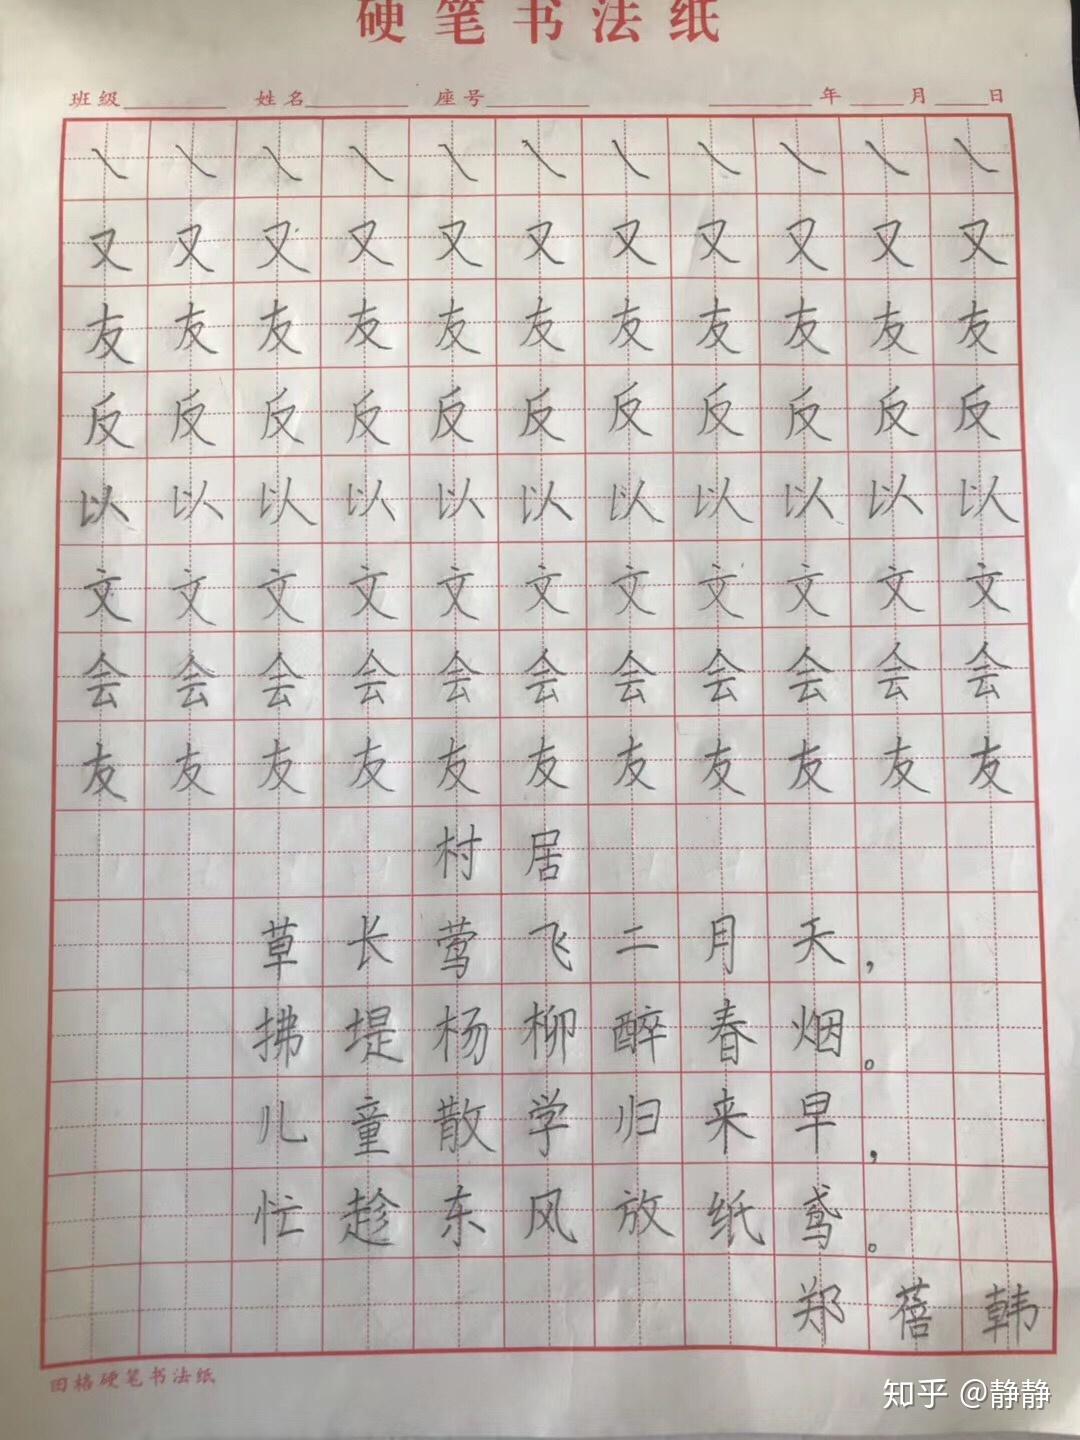 硬笔书法纸
班级 姓名 座号 年 月 日
㇏㇏㇏㇏㇏㇏㇏㇏㇏㇏㇏
又又又又又又又又又又又
友友友友友友友友友友友
反反反反反反反反反反反
以以以以以以以以以以以
文文文文文文文文文文文
会会会会会会会会会会会
友友友友友友友友友友友
村居
草长莺飞二月天，
拂堤杨柳醉春烟。
儿童散学归来早，
忙趁东风放纸鸢。
郑蓓韩
田格硬笔书法纸
知乎 @静静